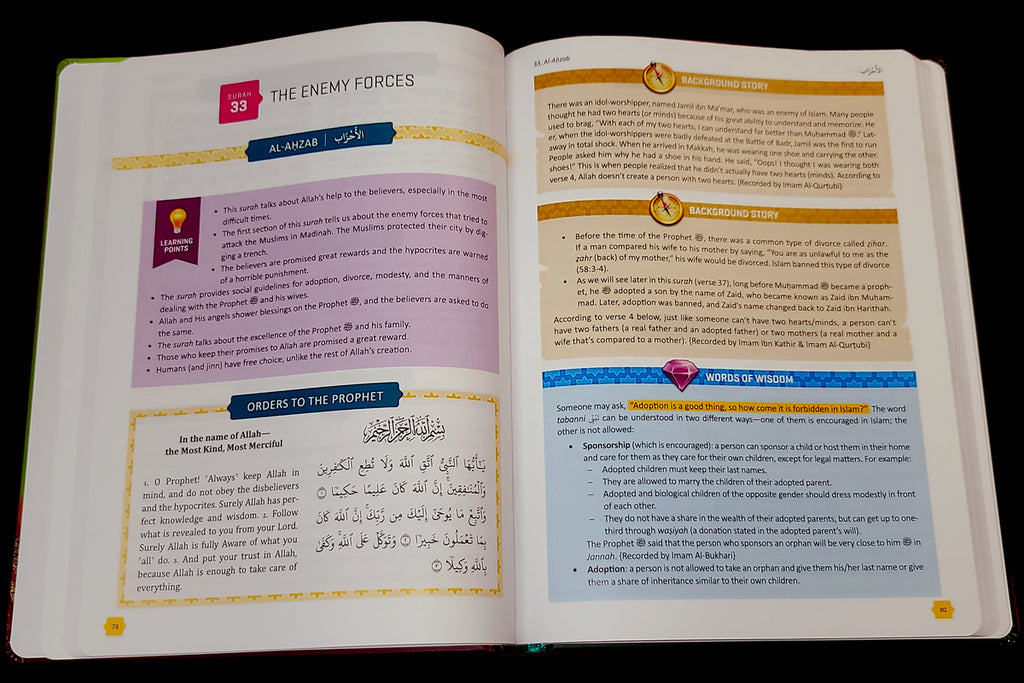 SURAH
33
THE ENEMY FORCES
AL-AḤZAB | الأَحْزَاب
LEARNING
POINTS
• This surah talks about Allah's help to the believers, especially in the most
difficult times.
• The first section of this surah tells us about the enemy forces that tried to
attack the Muslims in Madinah. The Muslims protected their city by dig-
ging a trench.
• The believers are promised great rewards and the hypocrites are warned
of a horrible punishment.
• The surah provides social guidelines for adoption, divorce, modesty, and the manners of
dealing with the Prophet ﷺ and his wives.
• Allah and His angels shower blessings on the Prophet ﷺ, and the believers are asked to do
the same.
• The surah talks about the excellence of the Prophet ﷺ and his family.
• Those who keep their promises to Allah are promised a great reward.
• Humans (and jinn) have free choice, unlike the rest of Allah's creation.
ORDERS TO THE PROPHET
In the name of Allah—
the Most Kind, Most Merciful
1. O Prophet! ˹Always˺ keep Allah in
mind, and do not obey the disbelievers
and the hypocrites. Surely Allah has per-
fect knowledge and wisdom. 2. Follow
what is revealed to you from your Lord.
Surely Allah is fully Aware of what you
˹all˺ do. 3. And put your trust in Allah,
because Allah is enough to take care of
everything.
بِسْمِ اللَّهِ الرَّحْمَٰنِ الرَّحِيمِ
يَـٰٓأَيُّهَا ٱلنَّبِىُّ ٱتَّقِ ٱللَّهَ وَلَا تُطِعِ ٱلْكَـٰفِرِينَ
وَٱلْمُنَـٰفِقِينَ ۗ إِنَّ ٱللَّهَ كَانَ عَلِيمًا حَكِيمًا ١
وَٱتَّبِعْ مَا يُوحَىٰٓ إِلَيْكَ مِن رَّبِّكَ ۚ إِنَّ ٱللَّهَ كَانَ
بِمَا تَعْمَلُونَ خَبِيرًا ٢ وَتَوَكَّلْ عَلَى ٱللَّهِ ۚ وَكَفَىٰ
بِٱللَّهِ وَكِيلًا ٣
79
33. Al-Aḥzab
الأَحْزَاب
BACKGROUND STORY
There was an idol-worshipper, named Jamil ibn Ma'mar, who was an enemy of Islam. Many people
thought he had two hearts (or minds) because of his great ability to understand and memorize. He
used to brag, "With each of my two hearts, I can understand far better than Muḥammad ﷺ." Lat-
er, when the idol-worshippers were badly defeated at the Battle of Badr, Jamil was the first to run
away in total shock. When he arrived in Makkah, he was wearing one shoe and carrying the other.
People asked him why he had a shoe in his hand. He said, "Oops! I thought I was wearing both
shoes!" This is when people realized that he didn't actually have two hearts (minds). According to
verse 4, Allah doesn't create a person with two hearts. {Recorded by Imam Al-Qurṭubi}
BACKGROUND STORY
• Before the time of the Prophet ﷺ, there was a common type of divorce called ẓihar.
If a man compared his wife to his mother by saying, "You are as unlawful to me as the
ẓahr (back) of my mother," his wife would be divorced. Islam banned this type of divorce
(58:3-4).
• As we will see later in this surah (verse 37), long before Muḥammad ﷺ became a proph-
et, he ﷺ adopted a son by the name of Zaid, who became known as Zaid ibn Muḥam-
mad. Later, adoption was banned, and Zaid's name changed back to Zaid ibn Ḥarithah.
According to verse 4 below, just like someone can't have two hearts/minds, a person can't
have two fathers (a real father and an adopted father) or two mothers (a real mother and a
wife that's compared to a mother). {Recorded by Imam Ibn Kathir & Imam Al-Qurṭubi}
WORDS OF WISDOM
Someone may ask, "Adoption is a good thing, so how come it is forbidden in Islam?" The word
tabanni تَبَنِّي can be understood in two different ways—one of them is encouraged in Islam; the
other is not allowed:
• Sponsorship (which is encouraged): a person can sponsor a child or host them in their home
and care for them as they care for their own children, except for legal matters. For example:
– Adopted children must keep their last names.
– They are allowed to marry the children of their adopted parent.
– Adopted and biological children of the opposite gender should dress modestly in front
of each other.
– They do not have a share in the wealth of their adopted parents, but can get up to one-
third through waṣiyah (a donation stated in the adopted parent's will).
The Prophet ﷺ said that the person who sponsors an orphan will be very close to him ﷺ in
Jannah. {Recorded by Imam Al-Bukhari}
• Adoption: a person is not allowed to take an orphan and give them his/her last name or give
them a share of inheritance similar to their own children.
80